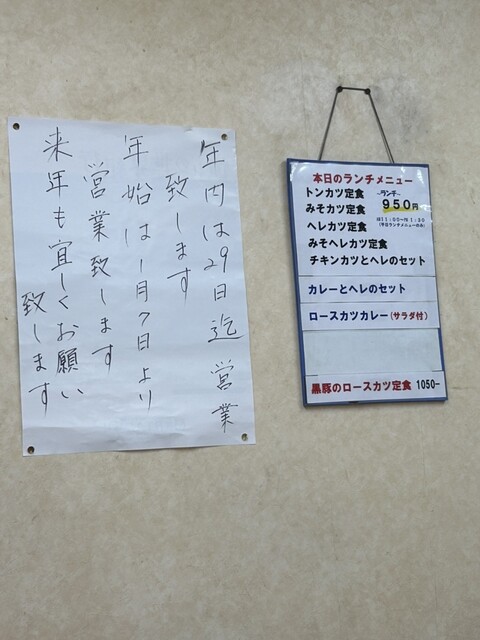 年内は29日迄営業
致します
年始は1月7日より
営業致します
来年も宜しくお願い
致します
本日のランチメニュー
トンカツ定食
みそカツ定食
ヘレカツ定食
みそヘレカツ定食
チキンカツとヘレのセット
ランチ
950円
(平日ランチメニューのみ)
カレーとヘレのセット
ロースカツカレー(サラダ付)
黒豚のロースカツ定食 1050-